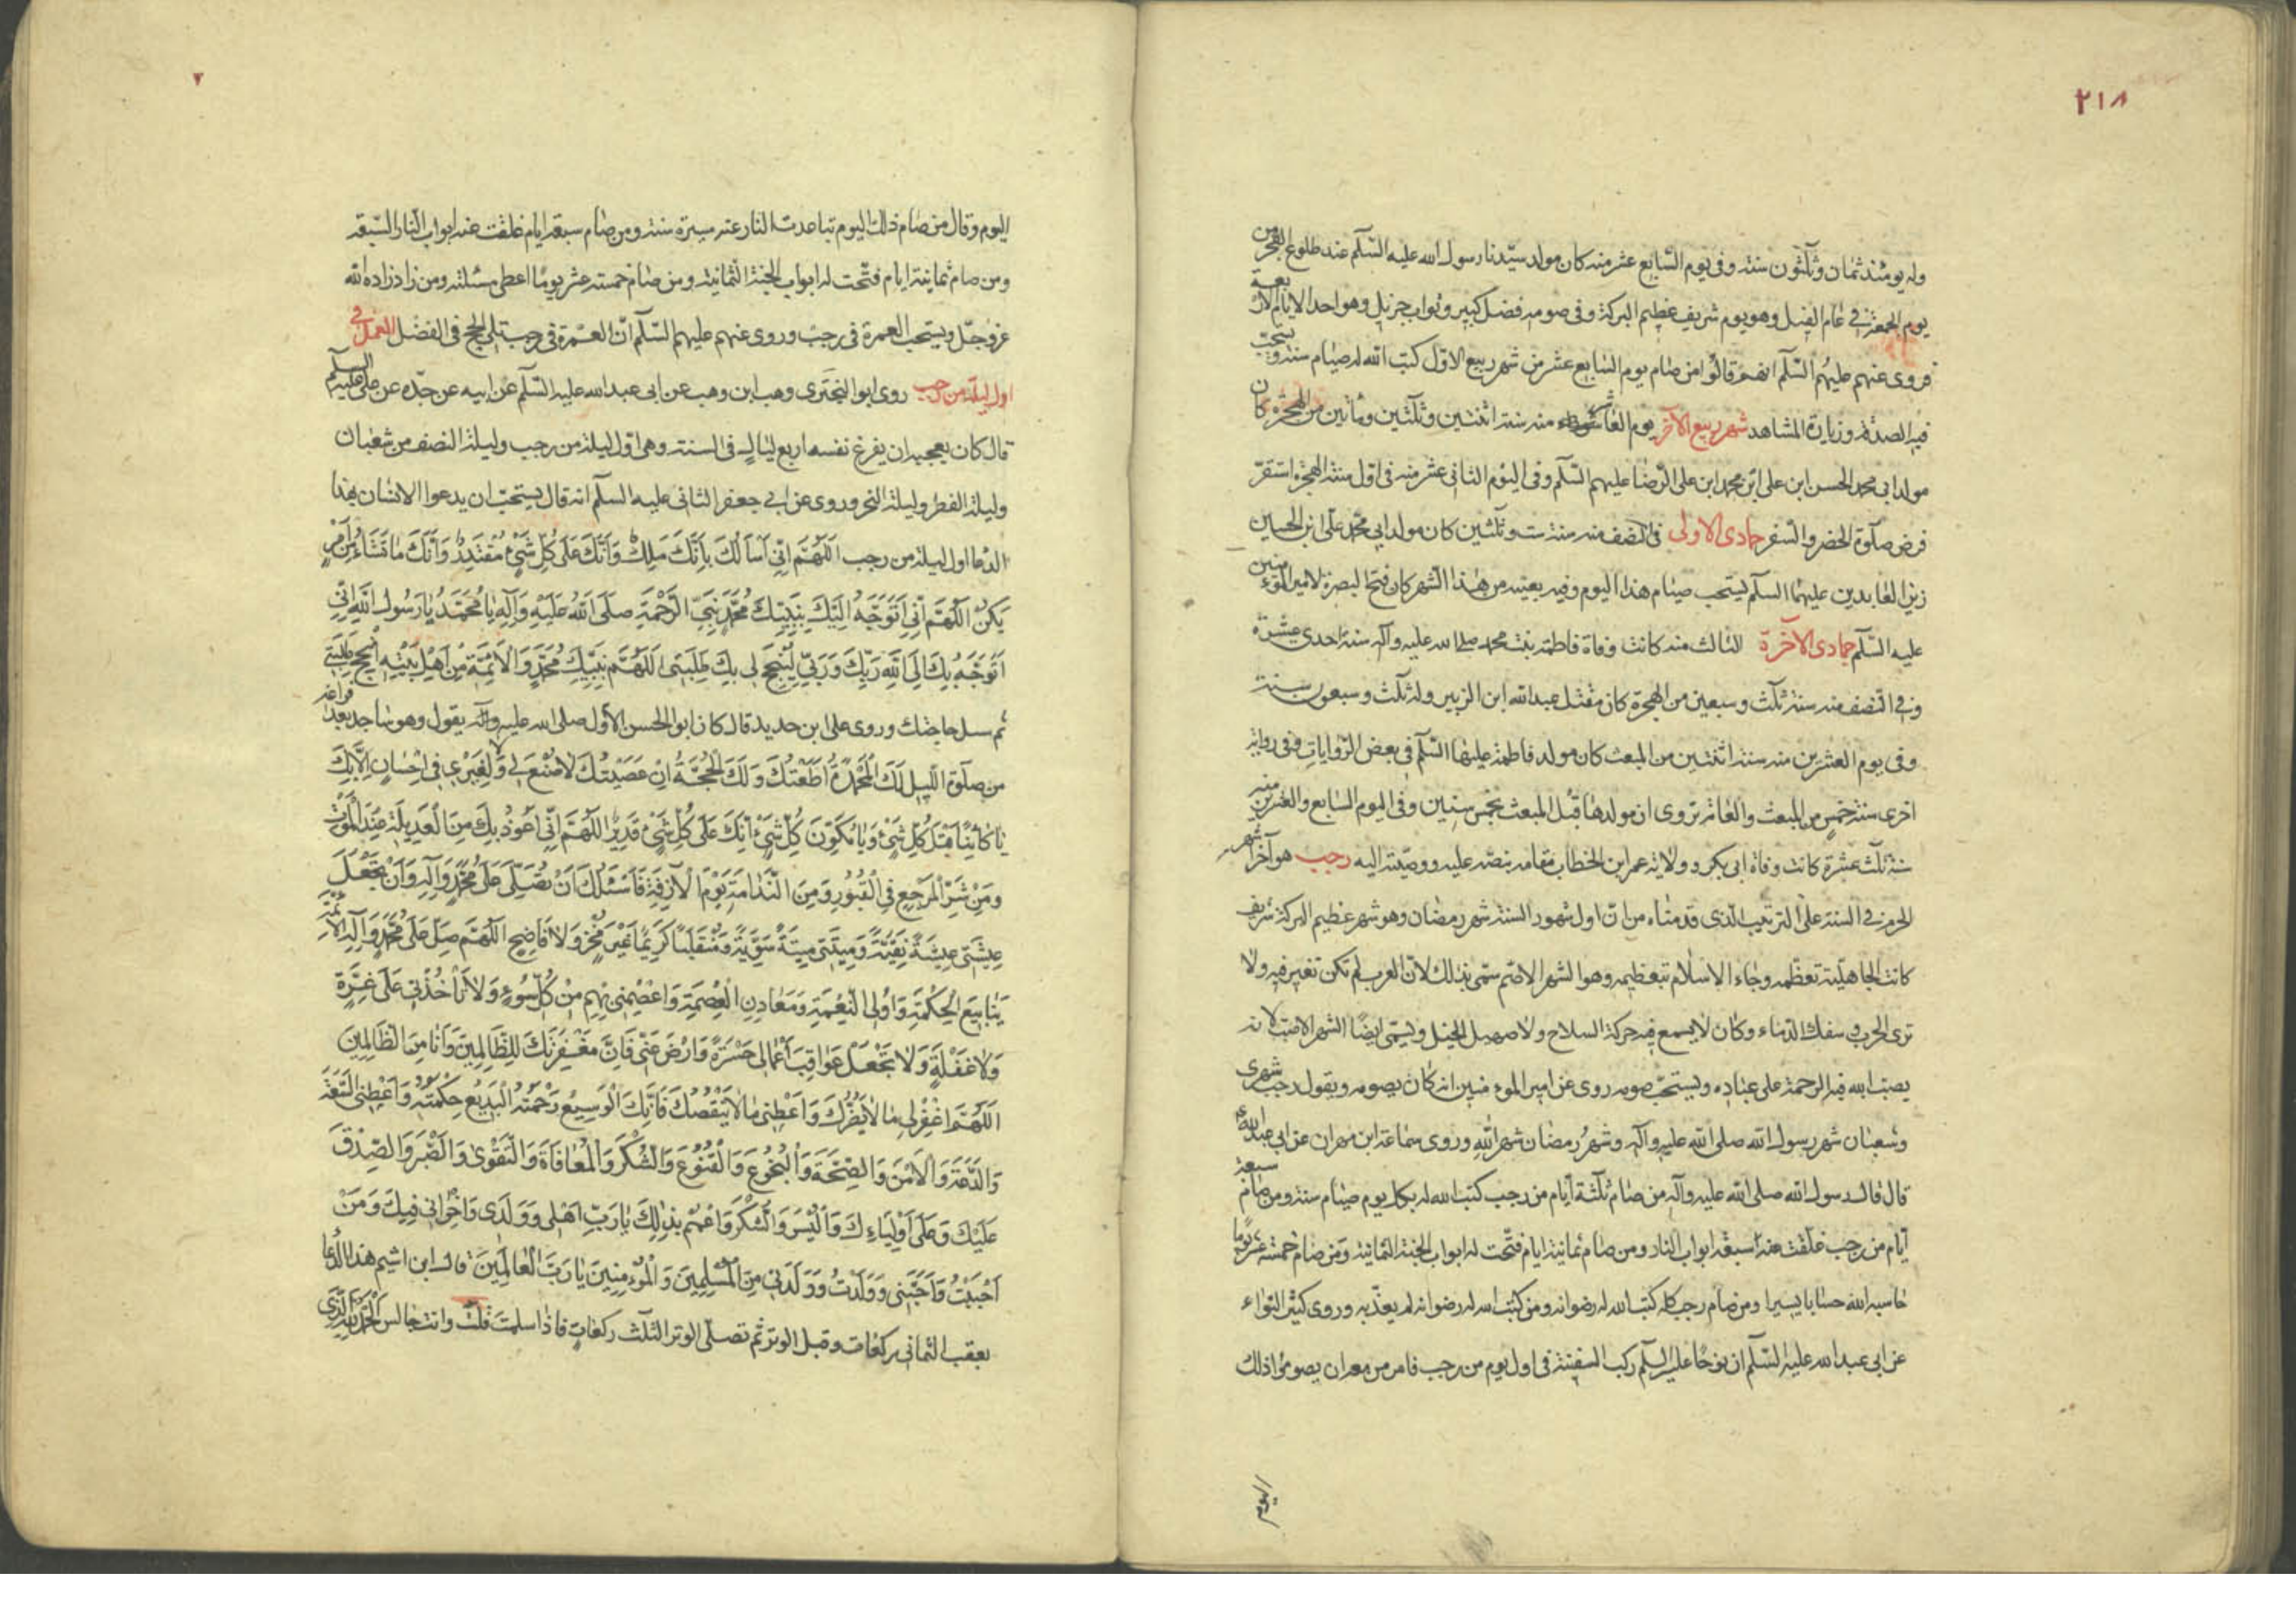 ٢١٨
وله يومئذ ثمان وثلثون سنة وفى يوم السابع عشر منه كان مولد سيدنا رسول الله عليه السلم عند طلوع الفجر من
يوم الجمعة في عام الفيل وهو يوم شريف عظيم البركة وفى صومه فضل كبير وثواب جزيل وهو احد الايام الاربعة
فروى عنهم عليهم السلم انهم قالوا من صام يوم السابع عشر من شهر ربيع الاول كتب الله له صيام سنة ويستحب
فيه الصدقة وزيارة المشاهد شهر ربيع الآخر يوم العاشر منه سنة اثنتين وثلثين ومأتين من الهجرة كان
مولد ابى محمد الحسن ابن على ابن محمد ابن على الرضا عليهم السلم وفى اليوم الثانى عشر منه فى اول سنة الهجرة استقر
فرض صلوة الحضر والسفر جمادى الاولى فى النصف منه سنة ست وثلثين كان مولد ابى محمد على ابن الحسين
زين العابدين عليهما السلم يستحب صيام هذا اليوم وفيه بعينه من هذا الشهر كان فتح البصرة لامير المؤمنين
عليه السلم جمادى الآخرة الثالث منه كانت وفاة فاطمة بنت محمد صلى الله عليه وآله سنة احدى عشرة
وفى النصف منه سنة ثلث وسبعين من الهجرة كان مقتل عبد الله ابن الزبير وله ثلث وسبعون سنة
وفى يوم العشرين منه سنة اثنتين من المبعث كان مولد فاطمة عليها السلم في بعض الروايات وفى رواية
اخرى سنة خمس من المبعث والعامة تروى ان مولدها قبل المبعث بخمس سنين وفى اليوم السابع والعشرين منه
سنة ثلث عشرة كانت وفاة ابى بكر وولاية عمر ابن الخطاب مقامه بنصه عليه ووصيته اليه رجب هو آخر اشهر
الحرم فى السنة على الترتيب الذى قدمناه من ان اول شهور السنة شهر رمضان وهو شهر عظيم البركة شريف
كانت الجاهلية تعظمه وجاء الاسلام بتعظيمه وهو الشهر الاصم سمى بذلك لان العرب لم تكن تغير فيه ولا
ترى الحرب وسفك الدماء وكان لا يسمع فيه حركة السلاح ولا صهيل الخيل ويسمى ايضا الشهر الاصب لانه
يصب الله فيه الرحمة على عباده ويستحب صومه روى عن امير المؤمنين انه كان يصومه ويقول رجب شهرى
وشعبان شهر رسول الله صلى الله عليه وآله وشهر رمضان شهر الله وروى سماعة ابن مهران عن ابى عبد الله
قال قال رسول الله صلى الله عليه وآله من صام ثلثة أيام من رجب كتب الله له بكل يوم صيام سنة ومن صام سبعة
أيام من رجب غلقت عنه سبعة ابواب النار ومن صام ثمانية ايام فتحت له ابواب الجنة الثمانية ومن صام خمسة عشر يوما
حاسبه الله حسابا يسيرا ومن صام رجب كله كتب الله له رضوانه ومن كتب الله له رضوانه لم يعذبه وروى كثير النواء
عن ابى عبد الله عليه السلم ان نوحا عليه السلم ركب السفينة فى اول يوم من رجب فامر من معه ان يصوموا ذلك
اليوم
اليوم وقال من صام ذلك اليوم تباعدت النار عنه مسيرة سنة ومن صام سبعة ايام غلقت عنه ابواب النار السبعة
ومن صام ثمانية ايام فتحت له ابواب الجنة الثمانية ومن صام خمسة عشر يوما اعطى مسئلته ومن زاد زاده الله
عز وجل ويستحب العمرة فى رجب وروى عنهم عليهم السلم ان العمرة فى رجب تلى الحج فى الفضل العمل في
اول ليلة من رجب روى ابو البخترى وهب ابن وهب عن ابى عبد الله عليه السلم عن ابيه عن جده عن على عليهم السلم
قال كان يعجبه ان يفرغ نفسه اربع ليال فى السنة وهى اول ليلة من رجب وليلة النصف من شعبان
وليلة الفطر وليلة النحر وروى عن ابي جعفر الثانى عليه السلم انه قال يستحب ان يدعوا الانسان بهذا
الدعا اول ليلة من رجب اَللّٰهُمَّ اِنِّي اَسْأَلُكَ بِاَنَّكَ مَلِكٌ وَاَنَّكَ عَلٰى كُلِّ شَيْءٍ مُقْتَدِرٌ وَاَنَّكَ مَا تَشَاءُ مِنْ اَمْرٍ
يَكُنْ اَللّٰهُمَّ اِنِّي اَتَوَجَّهُ اِلَيْكَ بِنَبِيِّكَ مُحَمَّدٍ نَبِيِّ الرَّحْمَةِ صَلَّى اللهُ عَلَيْهِ وَآلِهِ يَا مُحَمَّدُ يَا رَسُولَ اللهِ اِنِّي
اَتَوَجَّهُ بِكَ اِلَى اللهِ رَبِّكَ وَرَبِّي لِيُنْجِحَ لِي بِكَ طَلِبَتِي اَللّٰهُمَّ بِنَبِيِّكَ مُحَمَّدٍ وَالْاَئِمَّةِ مِنْ اَهْلِ بَيْتِهِ اَنْجِحْ طَلِبَتِي
ثم سل حاجتك وروى على ابن حديد قال كان ابو الحسن الأول صلى الله عليه وآله يقول وهو ساجد بعد فراغه
من صلوة الليل لَكَ الْمَحْمَدَةُ اِنْ اَطَعْتُكَ وَلَكَ الْحُجَّةُ اِنْ عَصَيْتُكَ لَا صُنْعَ لِي وَلَا لِغَيْرِي فِي اِحْسَانٍ اِلَّا بِكَ
يَا كَائِنًا قَبْلَ كُلِّ شَيْءٍ وَيَا مُكَوِّنَ كُلِّ شَيْءٍ اِنَّكَ عَلٰى كُلِّ شَيْءٍ قَدِيرٌ اَللّٰهُمَّ اِنِّي اَعُوذُ بِكَ مِنَ الْعَدِيلَةِ عِنْدَ الْمَوْتِ
وَمِنْ شَرِّ الْمَرْجِعِ فِي الْقُبُورِ وَمِنَ النَّدَامَةِ يَوْمَ الْآزِفَةِ فَاَسْئَلُكَ اَنْ تُصَلِّيَ عَلٰى مُحَمَّدٍ وَآلِهِ وَاَنْ تَجْعَلَ
عِيشَتِي عِيشَةً نَقِيَّةً وَمِيتَتِي مِيتَةً سَوِيَّةً وَمُنْقَلَبًا كَرِيمًا غَيْرَ مُخْزٍ وَلَا فَاضِحٍ اَللّٰهُمَّ صَلِّ عَلٰى مُحَمَّدٍ وَآلِهِ الْاَئِمَّةِ
يَنَابِيعِ الْحِكْمَةِ وَاُولِي النِّعْمَةِ وَمَعَادِنِ الْعِصْمَةِ وَاعْصِمْنِي بِهِمْ مِنْ كُلِّ سُوءٍ وَلَا تَأْخُذْنِي عَلٰى غِرَّةٍ
وَلَا غَفْلَةٍ وَلَا تَجْعَلْ عَوَاقِبَ اَعْمَالِي حَسْرَةً وَارْضَ عَنِّي فَاِنَّ مَغْفِرَتَكَ لِلظَّالِمِينَ وَاَنَا مِنَ الظَّالِمِينَ
اَللّٰهُمَّ اغْفِرْ لِي مَا لَا يَضُرُّكَ وَاَعْطِنِي مَا لَا يَنْقُصُكَ فَاِنَّكَ الْوَسِيعُ رَحْمَتُهُ الْبَدِيعُ حِكْمَتُهُ وَاَعْطِنِي السَّعَةَ
وَالدَّعَةَ وَالْاَمْنَ وَالصِّحَّةَ وَالْبُخُوعَ وَالْقُنُوعَ وَالشُّكْرَ وَالْمُعَافَاةَ وَالتَّقْوٰى وَالصَّبْرَ وَالصِّدْقَ
عَلَيْكَ وَعَلٰى اَوْلِيَاءِكَ وَالْيُسْرَ وَالشُّكْرَ وَاعْمُمْ بِذٰلِكَ يَا رَبِّ اَهْلِي وَوَلَدِي وَاِخْوَانِي فِيكَ وَمَنْ
اَحْبَبْتُ وَاَحَبَّنِي وَوَلَدْتُ وَوَلَدَنِي مِنَ الْمُسْلِمِينَ وَالْمُؤْمِنِينَ يَا رَبَّ الْعَالَمِينَ قال ابن اشيم هذا الدعا
بعقب الثمانى ركعات وقبل الوتر ثم تصلى الوتر الثلث ركعات فاذا سلمت قلت وانت جالس اَلْحَمْدُ لِلّٰهِ الَّذِي